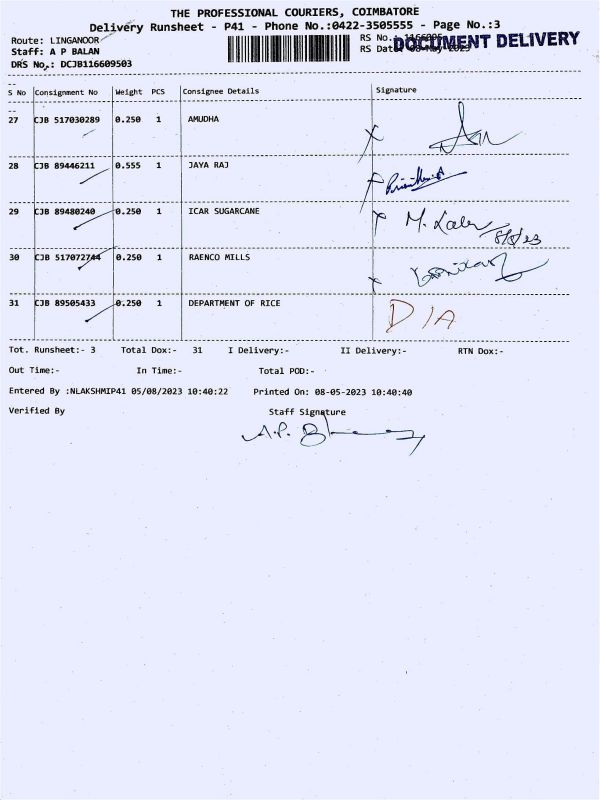 THE PROFESSIONAL COURIERS, COIMBATORE
Delivery Runsheet - P41 - Phone No.:0422-3505555 - Page No.:3
Route: LINGANOOR RS No.:
Staff: A P BALAN RS Date: 08-May-2023 DOCUMENT DELIVERY
DRS No.: DCJB116609503
S No Consignment No Weight PCS Consignee Details Signature
27 CJB 517030289 0.250 1 AMUDHA
28 CJB 89446211 0.555 1 JAYA RAJ
29 CJB 89480240 0.250 1 ICAR SUGARCANE M. 8/5/23
30 CJB 517072744 0.250 1 RAENCO MILLS
31 CJB 89505433 0.250 1 DEPARTMENT OF RICE D/A
Tot. Runsheet:- 3 Total Dox:- 31 I Delivery:- II Delivery:- RTN Dox:-
Out Time:- In Time:- Total POD:-
Entered By :NLAKSHMIP41 05/08/2023 10:40:22 Printed On: 08-05-2023 10:40:40
Verified By Staff Signature
A.P.